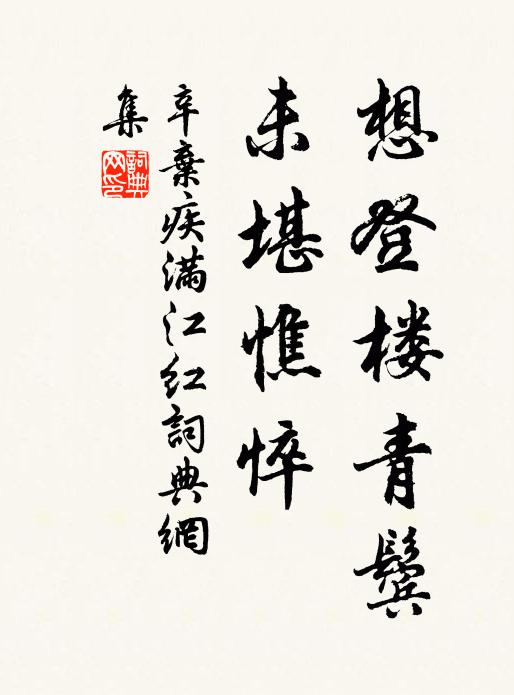 想登楼青鬓
未堪憔悴
辛棄疾满江红詞典網
集
詞典
网印